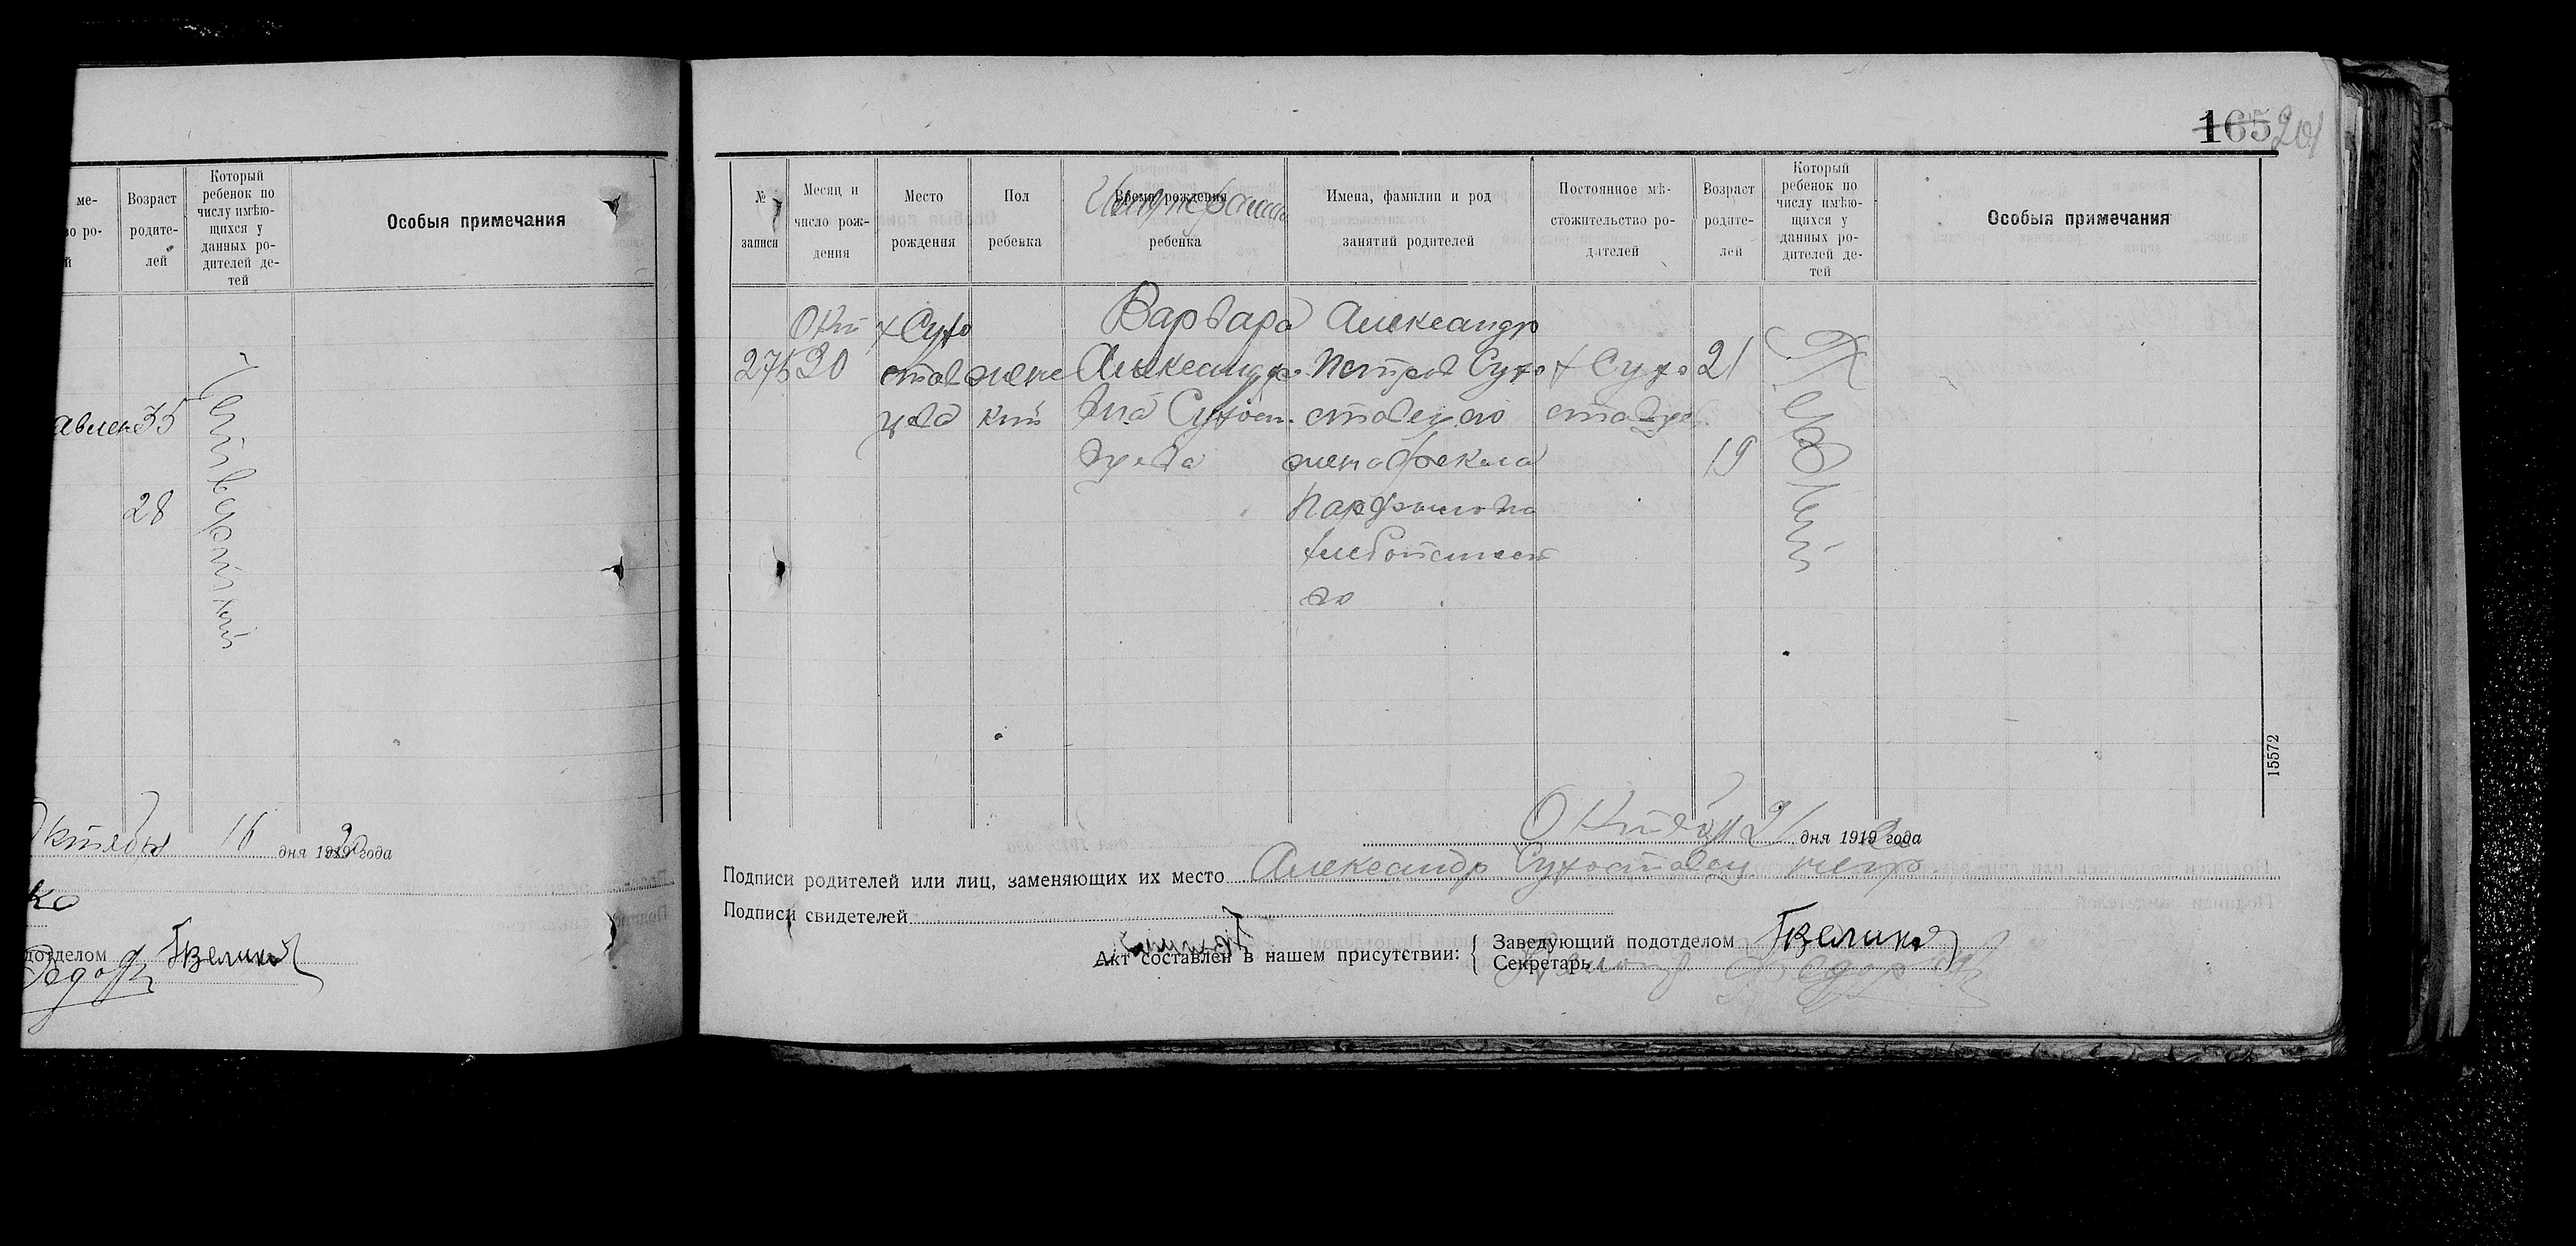 ме-
во ро-
й
Возраст
родите-
лей
Который
ребенок по
числу имѣю-
щихся у
данных ро-
дителей де-
тей
Особыя примечания
авлен
35
28
Четвертый
Октября 16 дня 1920 года
ко
дотделом Великов
Федор
165 201
№
записи
Месяц и
число рож-
дения
Место
рождения
Пол
ребенка
Время рождения
ребенка
Имена, фамилии и род
занятий родителей
Постоянное мѣ-
стожительство ро-
дителей
Возраст
родите-
лей
Который
ребенок по
числу имѣю-
щихся у
данных ро-
дителей де-
тей
Особыя примечания
275
Окт
20
х Сухо
ставцева
женс
кий
Варвара
Александро
вна Сухост.
Александр
Петров Сухо
ставцев
жена Фекла
Парфэновна
хлебопашест
во
х Сухо
ставцев
21
19
Первый
15572
Октября 21 дня 1920 года
Подписи родителей или лиц, заменяющих их место Александр Сухоставец
Подписи свидетелей
Акт составлен в нашем присутствии:
Заведующий подотделом Великов
Секретарь